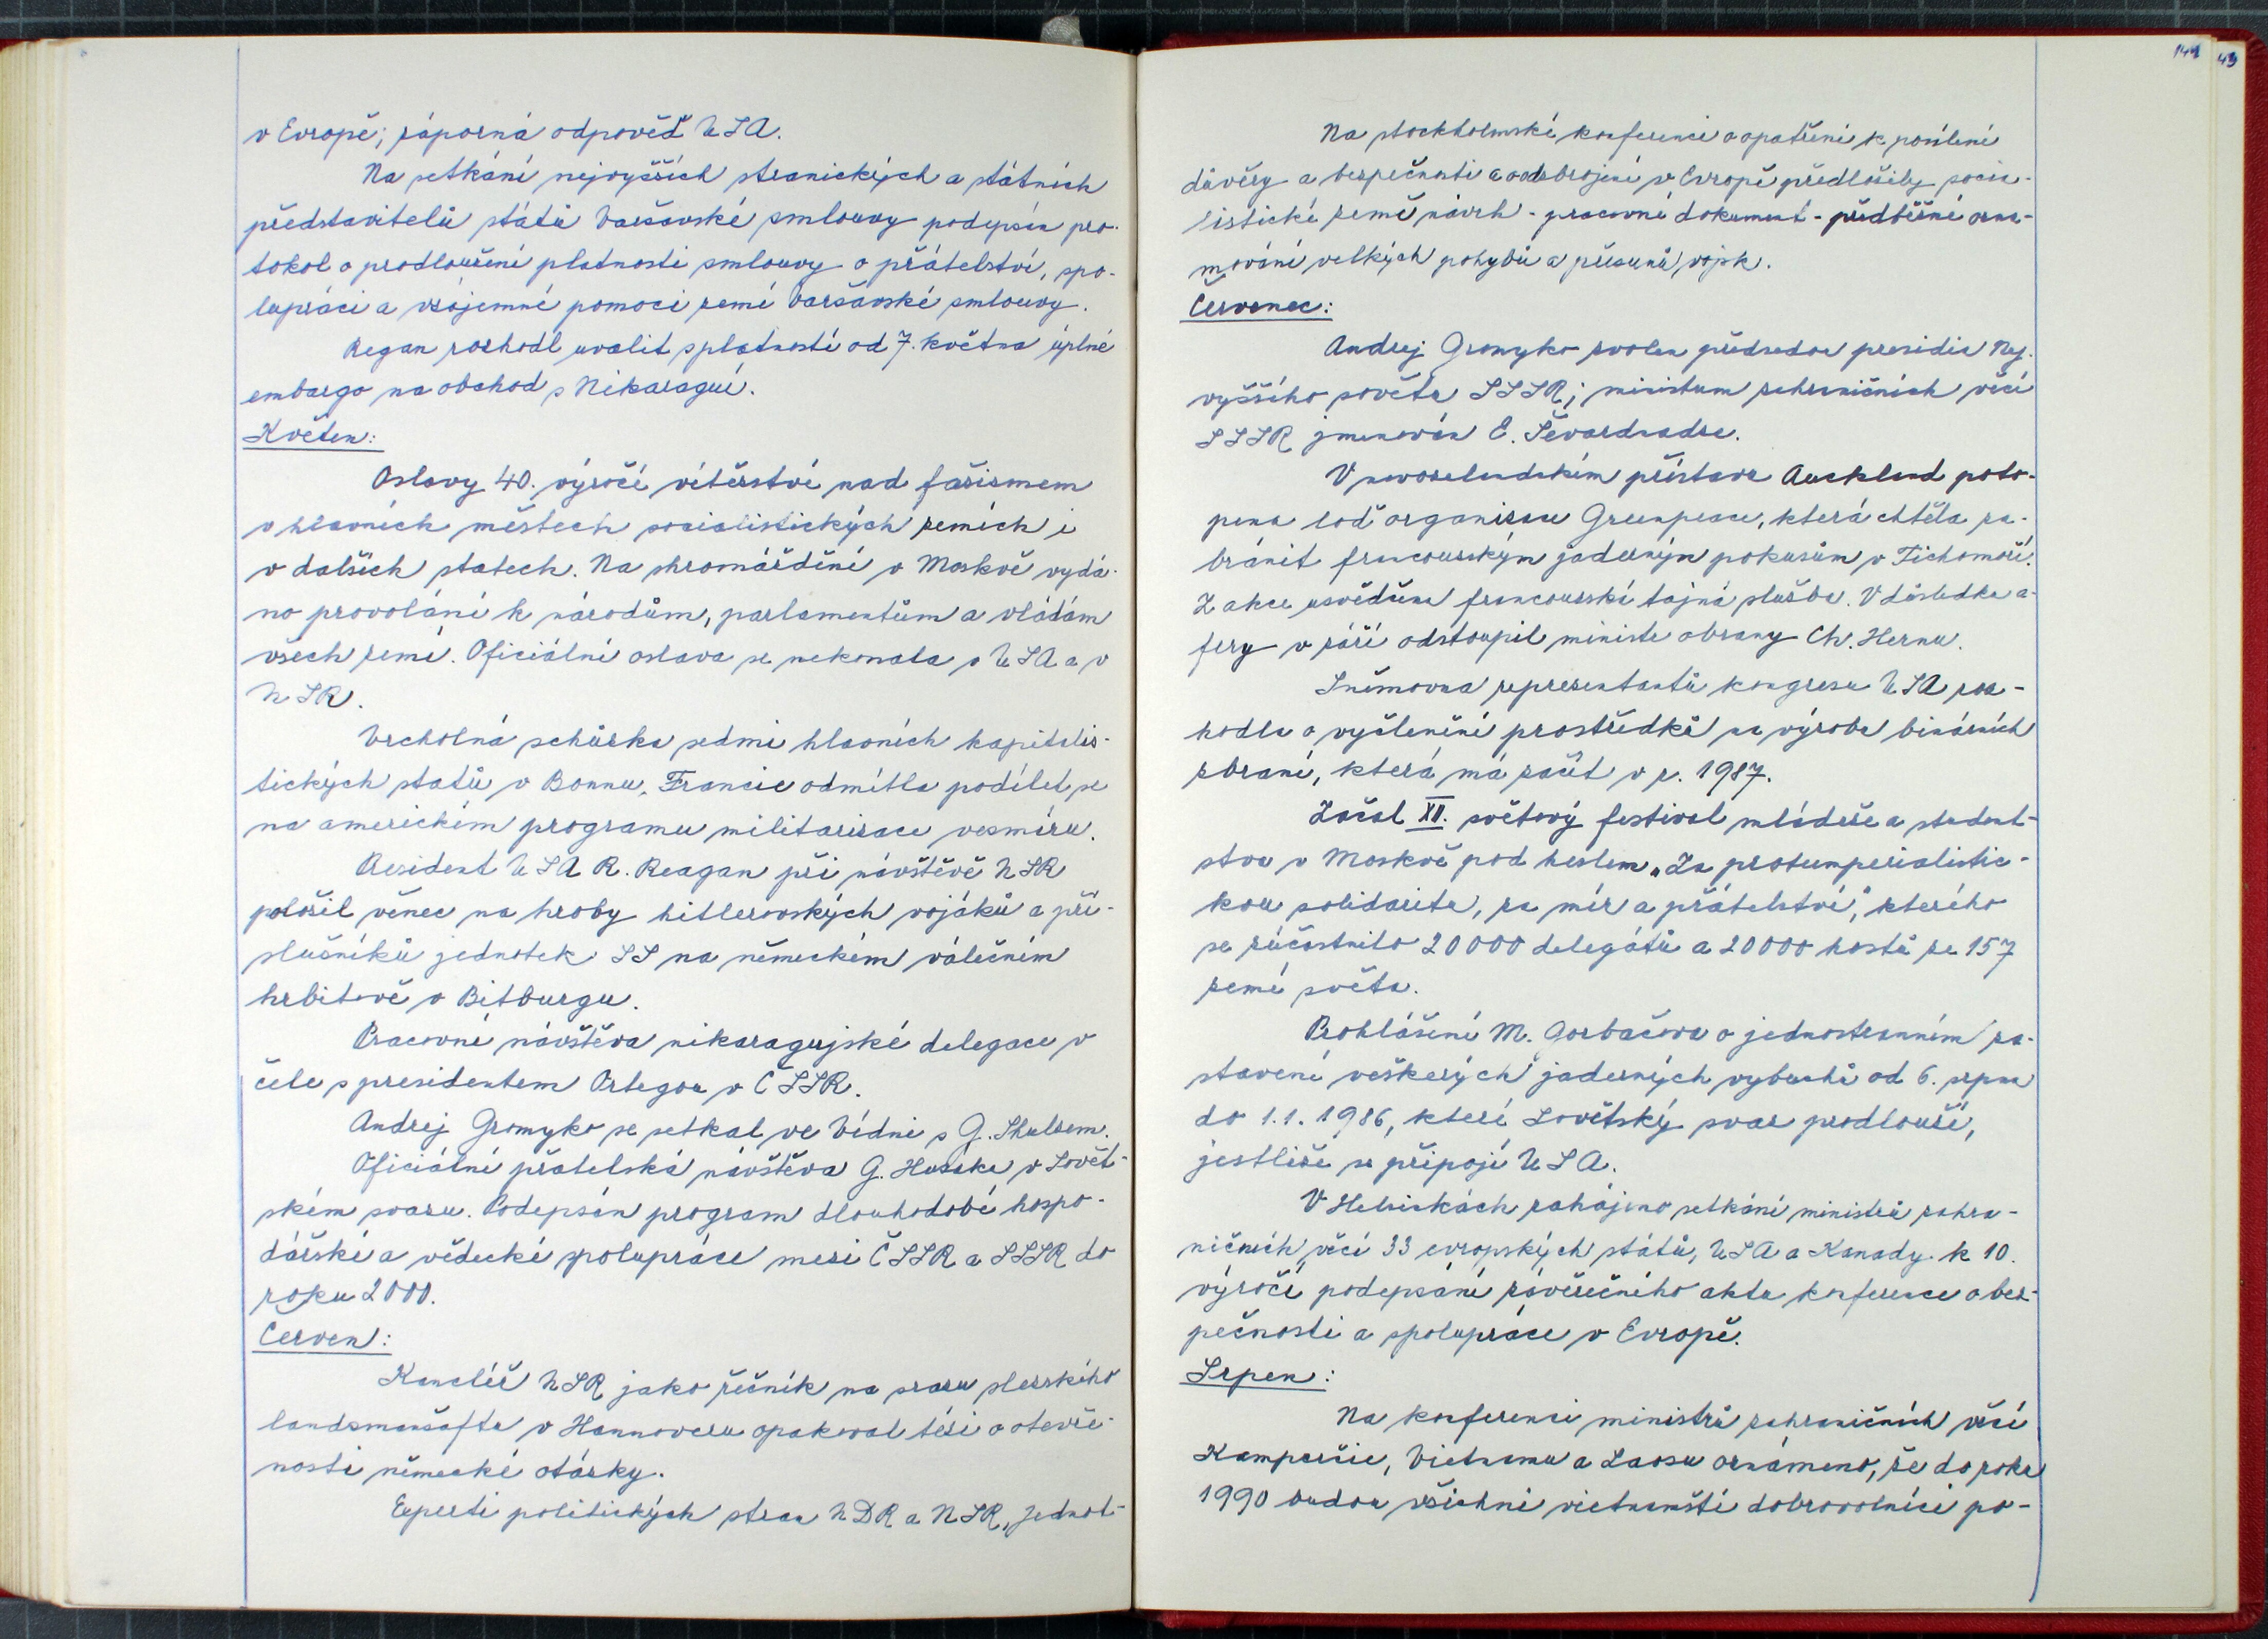 v Evropě; záporná odpověď USA.
Na setkání nejvyšších stranických a státních
představitelů států Varšavské smlouvy podepsán pro-
tokol o prodloužení platnosti smlouvy o přátelství, spo-
lupráci a vzájemné pomoci zemí Varšavské smlouvy.
Regan rozhodl uvalit s platností od 7. května úplné
embargo na obchod s Nikaraguí.
Květen:
Oslavy 40. výročí vítězství nad fašismem
v hlavních městech socialistických zemích i
v dalších státech. Na shromáždění v Moskvě vydá-
no provolání k národům, parlamentům a vládám
všech zemí. Oficiální oslava se nekonala v USA a v
NSR.
Vrcholná schůzka sedmi hlavních kapitalis-
tických států v Bonnu. Francie odmítla podílet se
na americkém programu militarizace vesmíru.
President USA R. Reagan při návštěvě NSR
položil věnec na hroby hitlerovských vojáků a pří-
slušníků jednotek SS na německém válečném
hřbitově v Bitburgu.
Pracovní návštěva nikaragujské delegace v
čele s presidentem Ortegou v ČSSR.
Andrej Gromyko se setkal ve Vídni s G. Shulzem.
Oficiální přátelská návštěva G. Husáka v Sovět-
ském svazu. Podepsán program dlouhodobé hospo-
dářské a vědecké spolupráce mezi ČSSR a SSSR do
roku 2000.
Červen:
Kancléř NSR jako řečník na srazu slezského
landsmanšaftu v Hannoveru opakoval tézi o otevře-
nosti německé otázky.
Experti politických stran NDR a NSR, Jednot-
144 43
Na stockholmské konferenci o opatření k posílení
důvěry a bezpečnosti a odzbrojení v Evropě předložily socia-
listické země návrh - pracovní dokument - předběžné ozna-
mování velkých pohybů a přesunů vojsk.
Červenec:
Andrej Gromyko zvolen předsedou presidia Nej-
vyššího sovětu SSSR; ministrem zahraničních věcí
SSSR jmenován E. Ševardnadze.
V novozelandském přístavu Auckland poto-
pena loď organizace Greenpeace, která chtěla za-
bránit francouzským jaderným pokusům v Tichomoří.
Z akce usvědčena francouzská tajná služba. V důsledku a-
fery v září odstoupil ministr obrany Ch. Hernu.
Sněmovna reprezentantů kongresu USA roz-
hodla o vyčlenění prostředků na výrobu binárních
zbraní, která má začít v r. 1987.
Začal XII. světový festival mládeže a student-
stva v Moskvě pod heslem „Za protiimperialistic-
kou solidaritu, za mír a přátelství", kterého
se zúčastnilo 20 000 delegátů a 20 000 hostů ze 157
zemí světa.
Prohlášení M. Gorbačova o jednostranném za-
stavení veškerých jaderných výbuchů od 6. srpna
do 1.1. 1986, které Sovětský svaz prodlouží,
jestliže se připojí USA.
V Helsinkách zahájeno setkání ministrů zahra-
ničních věcí 33 evropských států, USA a Kanady k 10.
výročí podepsání závěrečného aktu konference o bez-
pečnosti a spolupráce v Evropě.
Srpen:
Na konferenci ministrů zahraničních věcí
Kampučie, Vietnamu a Laosu oznámeno, že do roku
1990 budou všichni vietnamští dobrovolníci po-